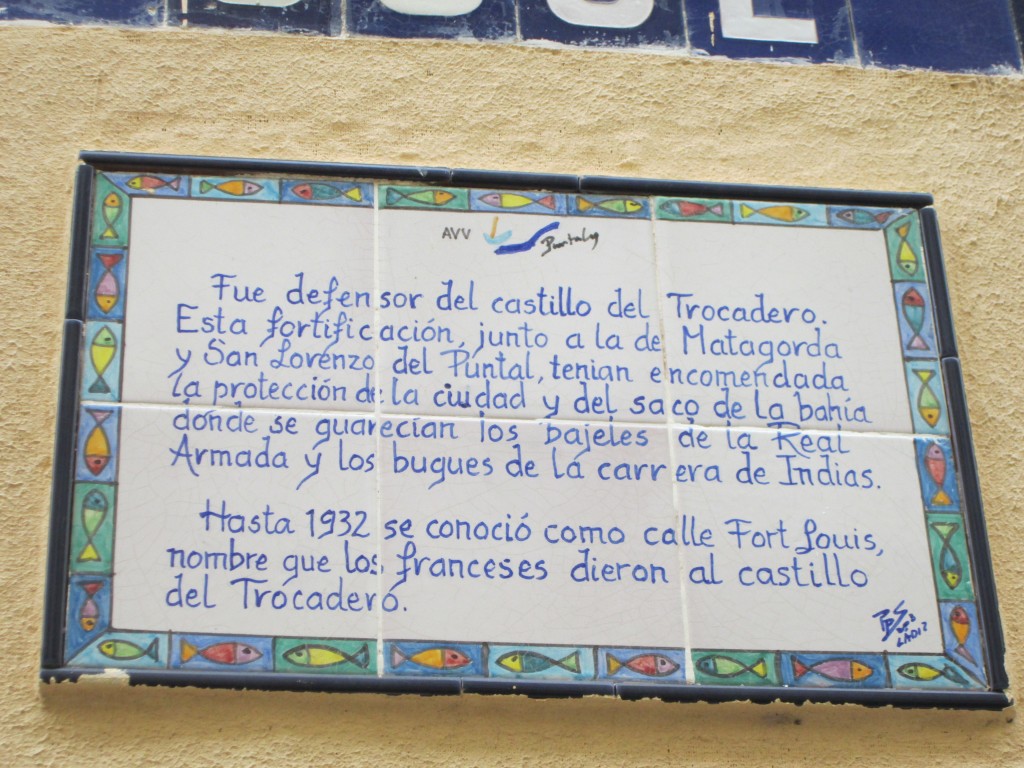 AVV Puntales
Fue defensor del castillo del Trocadero.
Esta fortificación, junto a la de Matagorda
y San Lorenzo del Puntal, tenian encomendada
la protección de la ciudad y del saco de la bahía
donde se guarecían los bajeles de la Real
Armada y los buques de la carrera de Indias.
Hasta 1932 se conoció como calle Fort Louis,
nombre que los franceses dieron al castillo
del Trocadero.
CÁDIZ